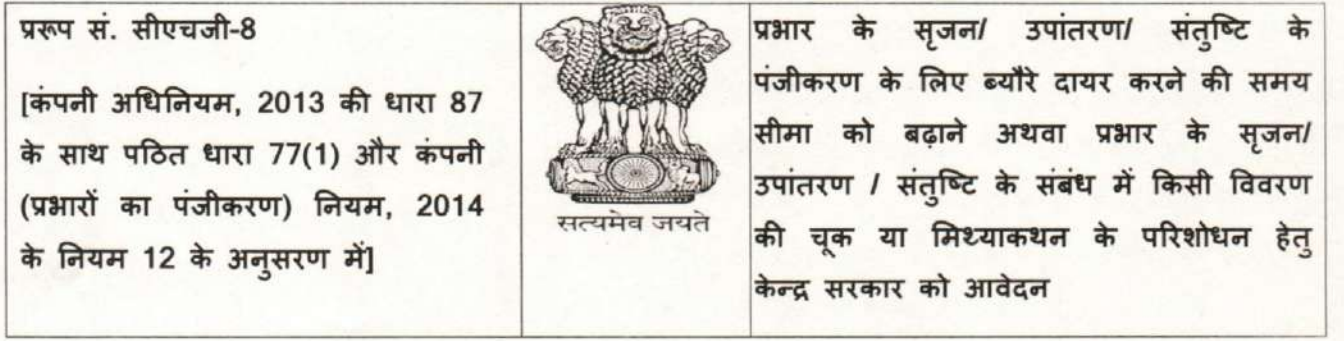 प्ररूप सं. सीएचजी-8
[कंपनी अधिनियम, 2013 की धारा 87
के साथ पठित धारा 77(1) और कंपनी
(प्रभारों का पंजीकरण) नियम, 2014
के नियम 12 के अनुसरण में]
सत्यमेव जयते
प्रभार के सृजन/ उपांतरण/ संतुष्टि के
पंजीकरण के लिए ब्यौरे दायर करने की समय
सीमा को बढ़ाने अथवा प्रभार के सृजन/
उपांतरण / संतुष्टि के संबंध में किसी विवरण
की चूक या मिथ्याकथन के परिशोधन हेतु
केन्द्र सरकार को आवेदन